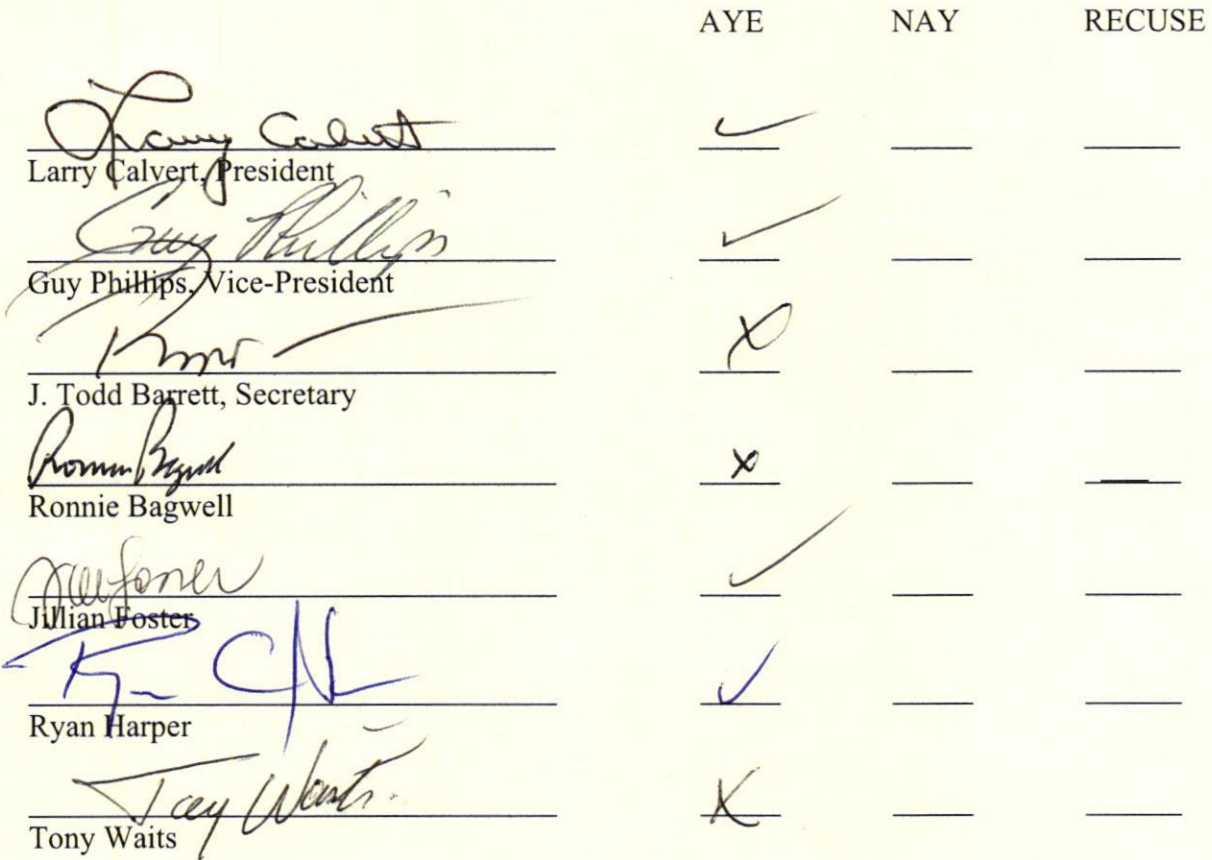 AYE NAY RECUSE
Larry Calvert ✓
Larry Calvert, President
Guy Phillips ✓
Guy Phillips, Vice-President
X
J. Todd Barrett, Secretary
Ronnie Bagwell X
Ronnie Bagwell
✓
Jillian Foster
✓
Ryan Harper
Tony Waits X
Tony Waits